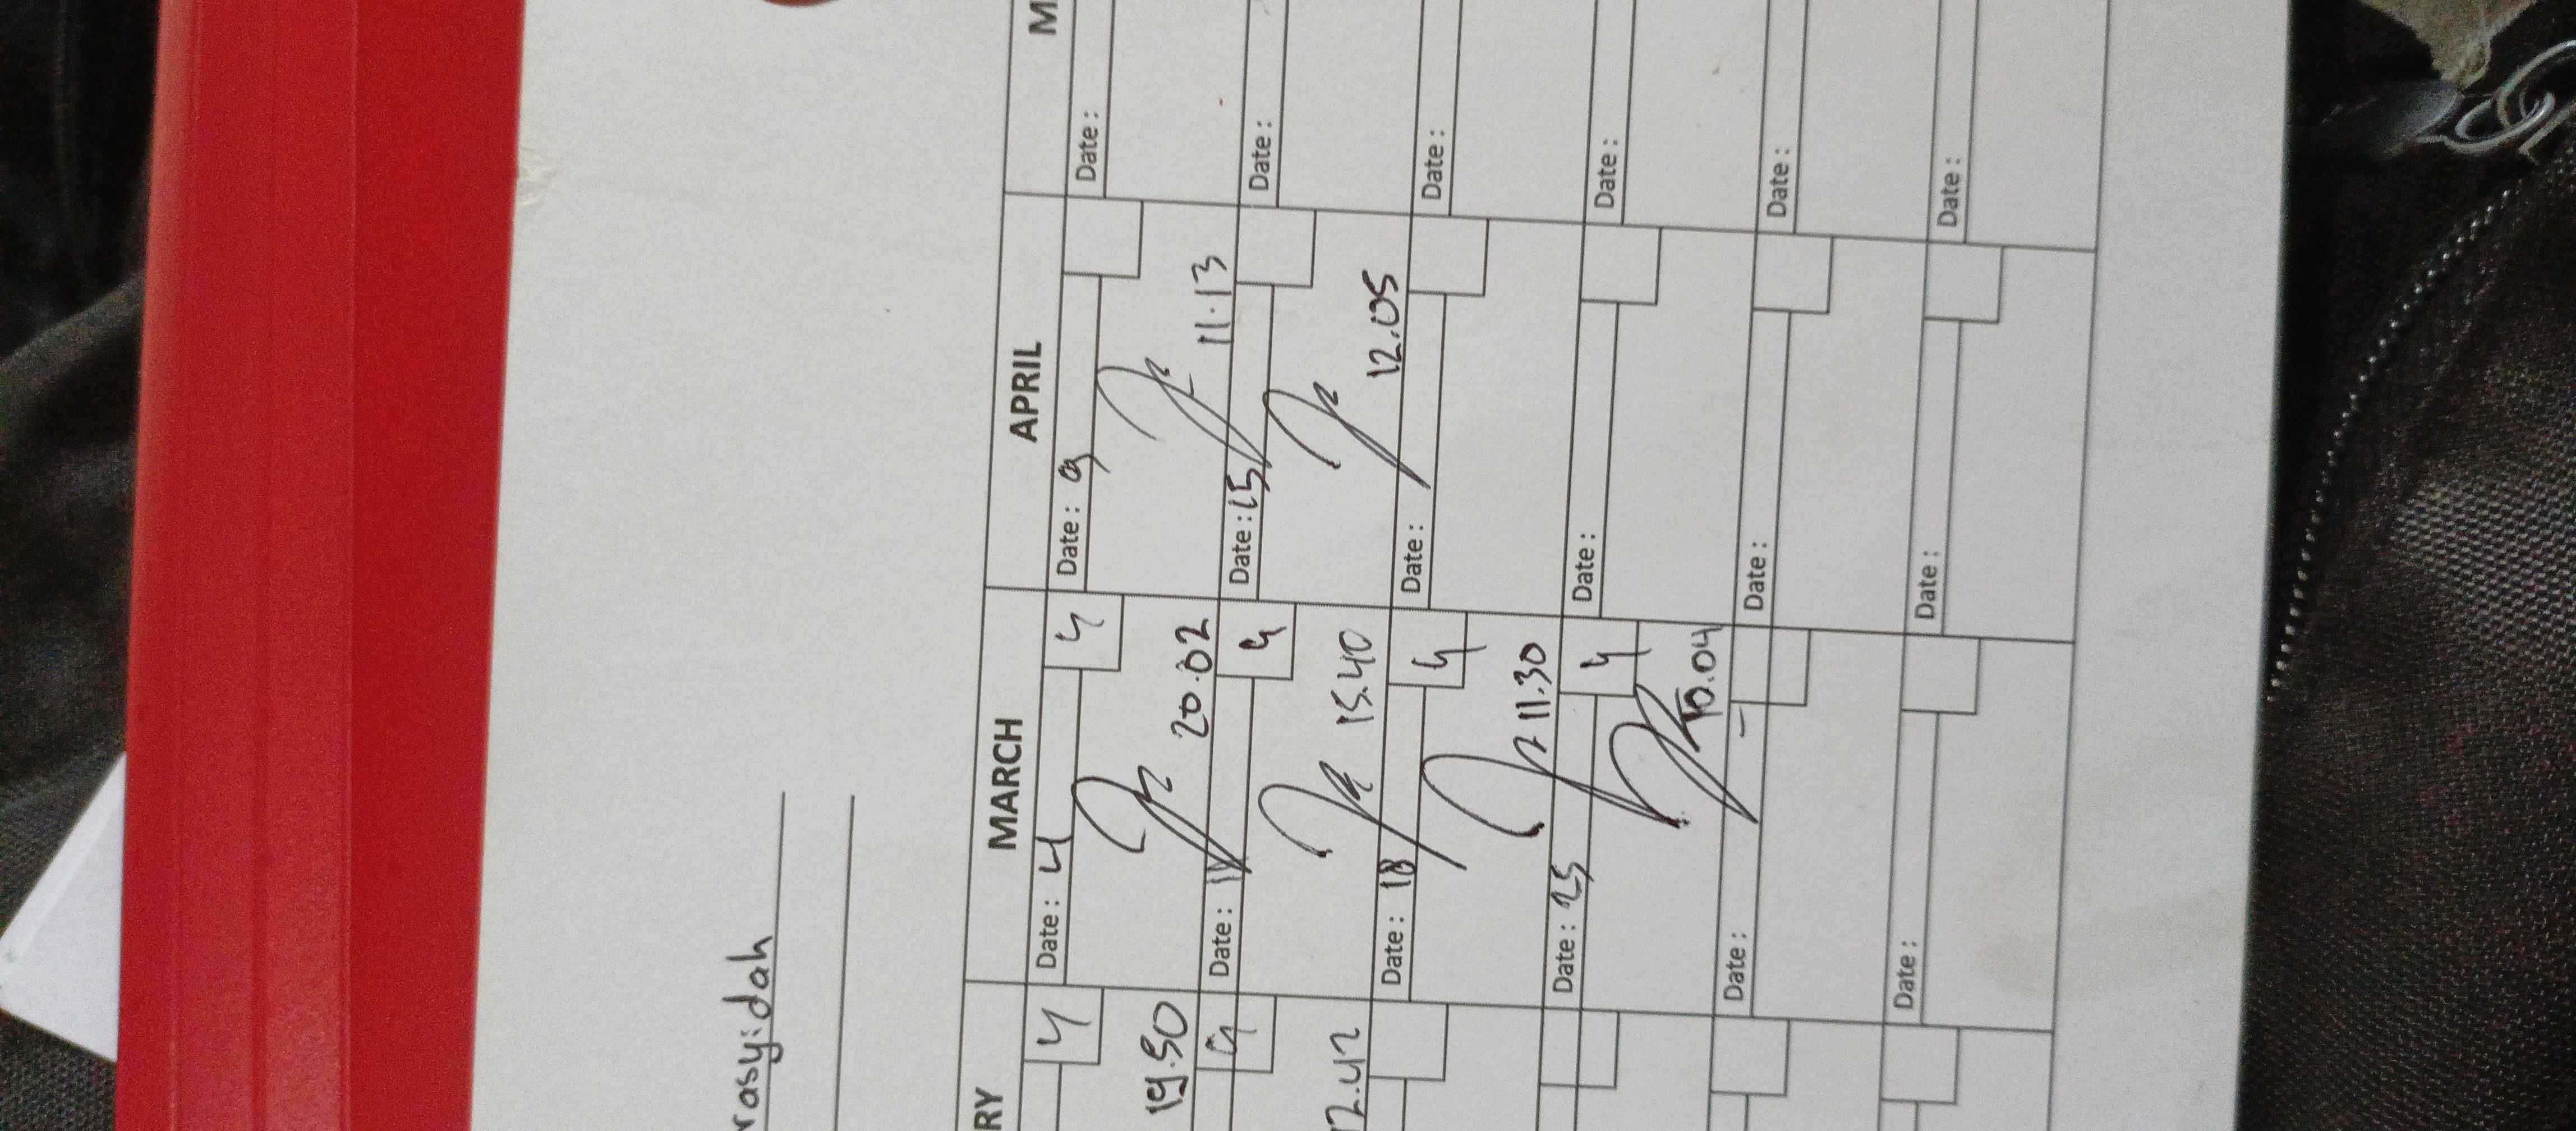 rasyidah
RY
MARCH
APRIL
M
4
Date : 4
4
Date : 9
Date :
19.50
20.02
11.13
4
Date :
4
Date : 15
Date :
2.42
15.40
12.05
Date : 18
4
Date :
Date :
11.30
Date : 25
4
Date :
Date :
10.04
Date :
Date :
Date :
Date :
Date :
Date :